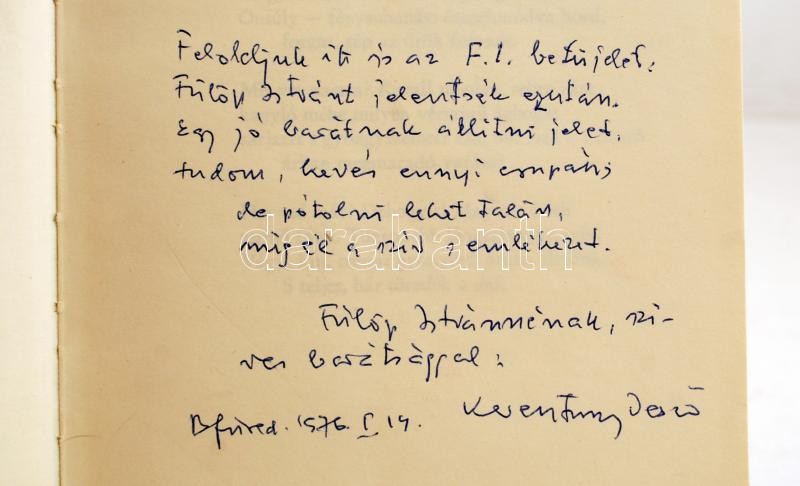 Feloldjuk itt is az F. I. betűjelet:
Fülöp Istvánt jelentsék ezután.
Egy jó barátnak állitni jelet,
tudom, kevés ennyi csupán;
de pótolni lehet talán,
mig él a sziv s emlékezet.
darabanth
S teljes, bár
Fülöp Istvánnénak, szi-
ves barátsággal:
Bfüred. 1976. I. 14.
Keresztury Dezső